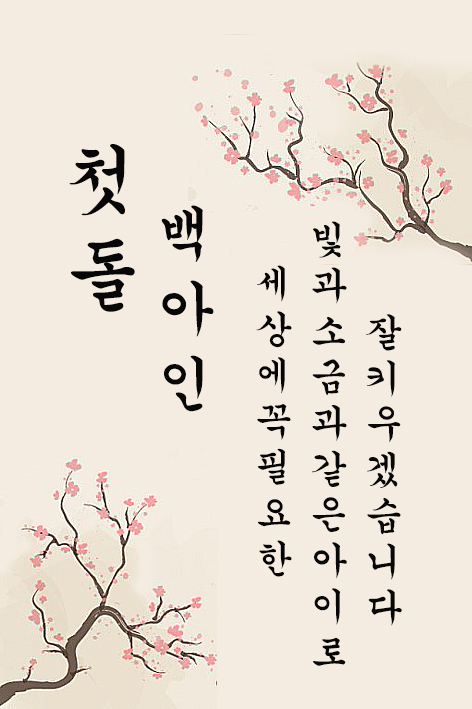 첫돌
백아인
세상에꼭필요한
빛과소금과같은아이로
잘키우겠습니다